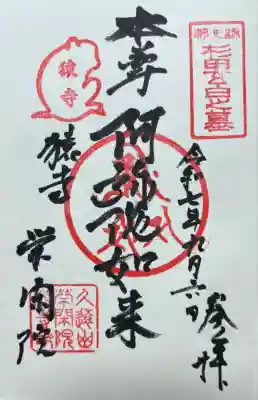 史跡
杉田玄白墓
令和七年九月六日
奉拝
本尊
阿弥陀如来
猿寺
猿寺
栄閑院
久遠山
栄閑院